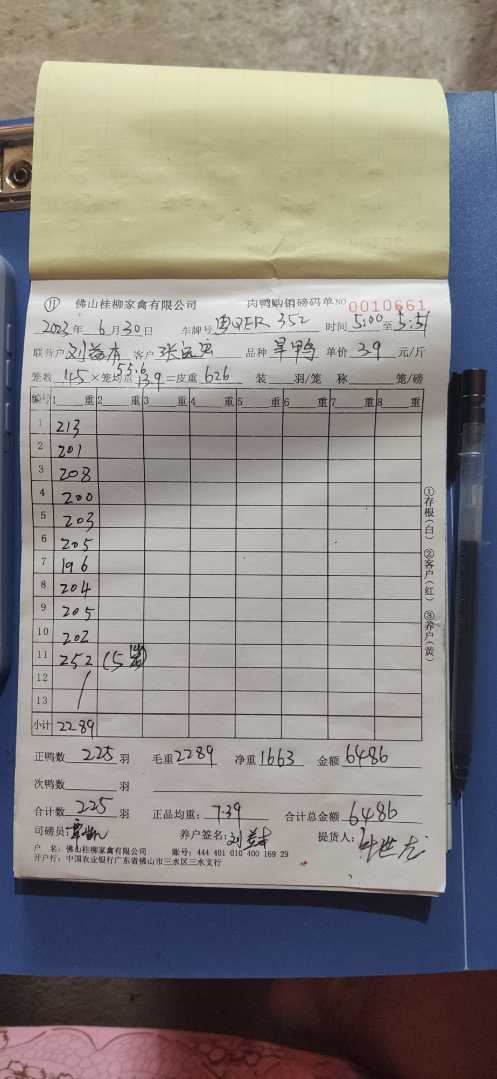 ⑪ 佛山桂柳家禽有限公司 肉鸭购销磅码单 NO 0010661
2023年 6月30日 车牌号 QER 352 时间 5:00 至 5:51
联营户 刘 客户 张 品种 旱鸭 单价 3.9 元/斤
笼数 45 × 笼均重 13.9 = 皮重 626 装 羽/笼 称 笼/磅
55.6
编号 1 重 2 重 3 重 4 重 5 重 6 重 7 重 8 重
1 213
2 201
3 208
4 200
5 203
6 205
7 196
8 204
9 205
10 202
11 252 (5
12
13
小计 2289
正鸭数 225 羽 毛重 2289 净重 1663 金额 6486
次鸭数 羽
合计数 225 羽 正品均重: 7.39 合计总金额 6486
司磅员: 养户签名: 刘 提货人:
户 名: 佛山桂柳家禽有限公司 账号: 444 401 010 400 169 29
开户行: 中国农业银行广东省佛山市三水区三水支行
①存根(白) ②客户(红) ③养户(黄)